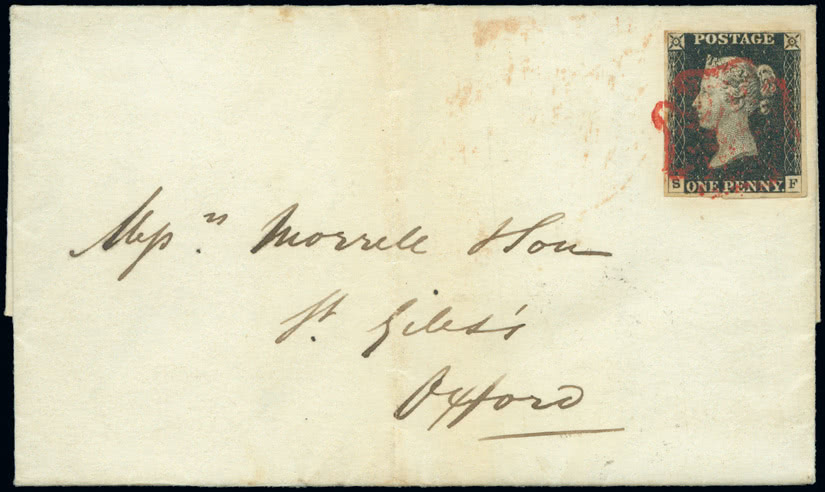 POSTAGE
S ONE PENNY F
Messrs. Morrell & Son
St. Giles's
Oxford